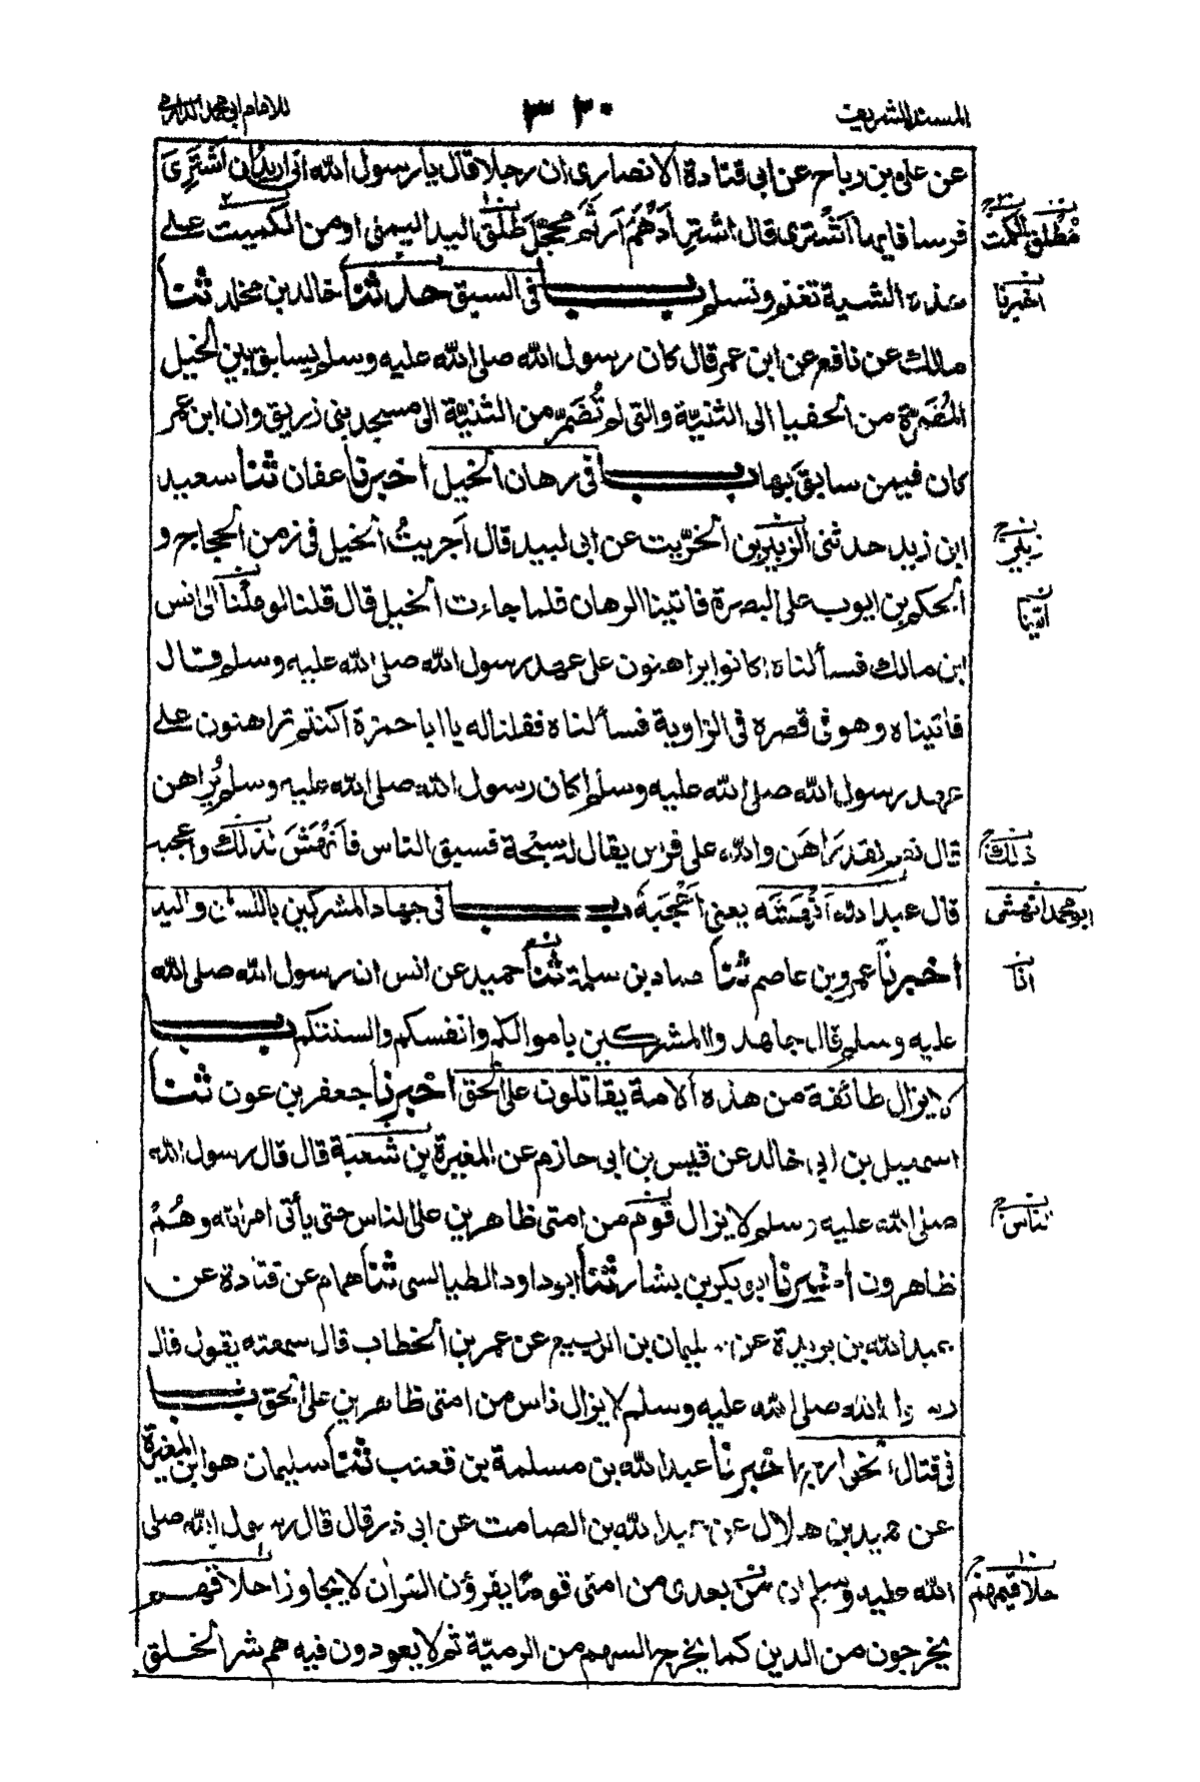 المسند الشريف
٣٣٠
للامام ابي محمد الدارمي
عن علي بن رباح عن ابي قتادة الانصاري ان رجلا قال يا رسول الله اني اريد ان اَشْتَرِيَ
فرسا فايها اَشْتَرى قال اشترِ اَدْهَمَ اَرْثَمَ مُحَجَّلَ طَلْقَ اليد اليمنى او من الكميت على
مُطلَق الكمت
هذه الشية تغنم وتسلم باب في السبق حدثنا خالد بن مخلد ثنا
اخبرنا
مالك عن نافع عن ابن عمر قال كان رسول الله صلى الله عليه وسلم يسابق بين الخيل
المُضَمَّرة من الحفيا الى الثنيّة والتي لم تُضَمَّر من الثنيّة الى مسجد بني زريق وان ابن عمر
كان فيمن سابق بها باب في رهان الخيل اخبرنا عفان ثنا سعيد
ابن زيد حدثني الزبير بن الخرّيت عن ابي لبيد قال اَجريتُ الخيل في زمن الحجاج و
الحكم بن ايوب على البصرة فاتينا الرهان فلما جاءت الخيل قال قلنا لو مِلْنا الى انس
أتينا
ابن مالك فسألناه اكانوا يراهنون على عهد رسول الله صلى الله عليه وسلم قال
فاتيناه وهو في قصره في الزاوية فسألناه فقلنا له يا ابا حمزة اكنتم تراهنون على
عهد رسول الله صلى الله عليه وسلم اكان رسول الله صلى الله عليه وسلم يُراهن
قال نعم لقد رَاهَن والله على فرس يقال له سبْحة فسبق الناس فاَنهَشَ لذلك واعجبه
ذلك
قال عبد الله اَنْهَشَه يعني اَعْجَبَهُ باب في جهاد المشركين باللسان واليد
ابو محمد انهشى
اخبرنا عمرو بن عاصم ثنا حماد بن سلمة ثنا حميد عن انس ان رسول الله صلى الله
انا
عليه وسلم قال جاهدوا المشركين باموالكم وانفسكم والسنتكم باب
لا يزال طائفة من هذه الامة يقاتلون على الحق اخبرنا جعفر بن عون ثنا
اسمعيل بن ابي خالد عن قيس بن ابي حازم عن المغيرة بن شعبة قال قال رسول الله
صلى الله عليه وسلم لا يزال قوم من امتي ظاهرين على الناس حتى يأتي امر الله وهُمْ
ناس
ظاهرون اخبرنا ابو بكر بن بشار ثنا ابو داود الطيالسي ثنا همام عن قتادة عن
عبد الله بن بريدة عن سليمان بن الربيع عن عمر بن الخطاب قال سمعته يقول قال
رسول الله صلى الله عليه وسلم لا يزال ناس من امتي ظاهرين على الحق باب
في قتال الخوارج اخبرنا عبد الله بن مسلمة بن قعنب ثنا سليمان هو ابن المغيرة
عن حميد بن هلال عن عبد الله بن الصامت عن ابي ذر قال قال رسول الله صلى
الله عليه وسلم ان من بعدي من امتي قومًا يقرؤن القران لا يجاوز احلاقهم
حلاقيمهم
يخرجون من الدين كما يخرج السهم من الرميّة ثم لا يعودون فيه هم شر الخلق